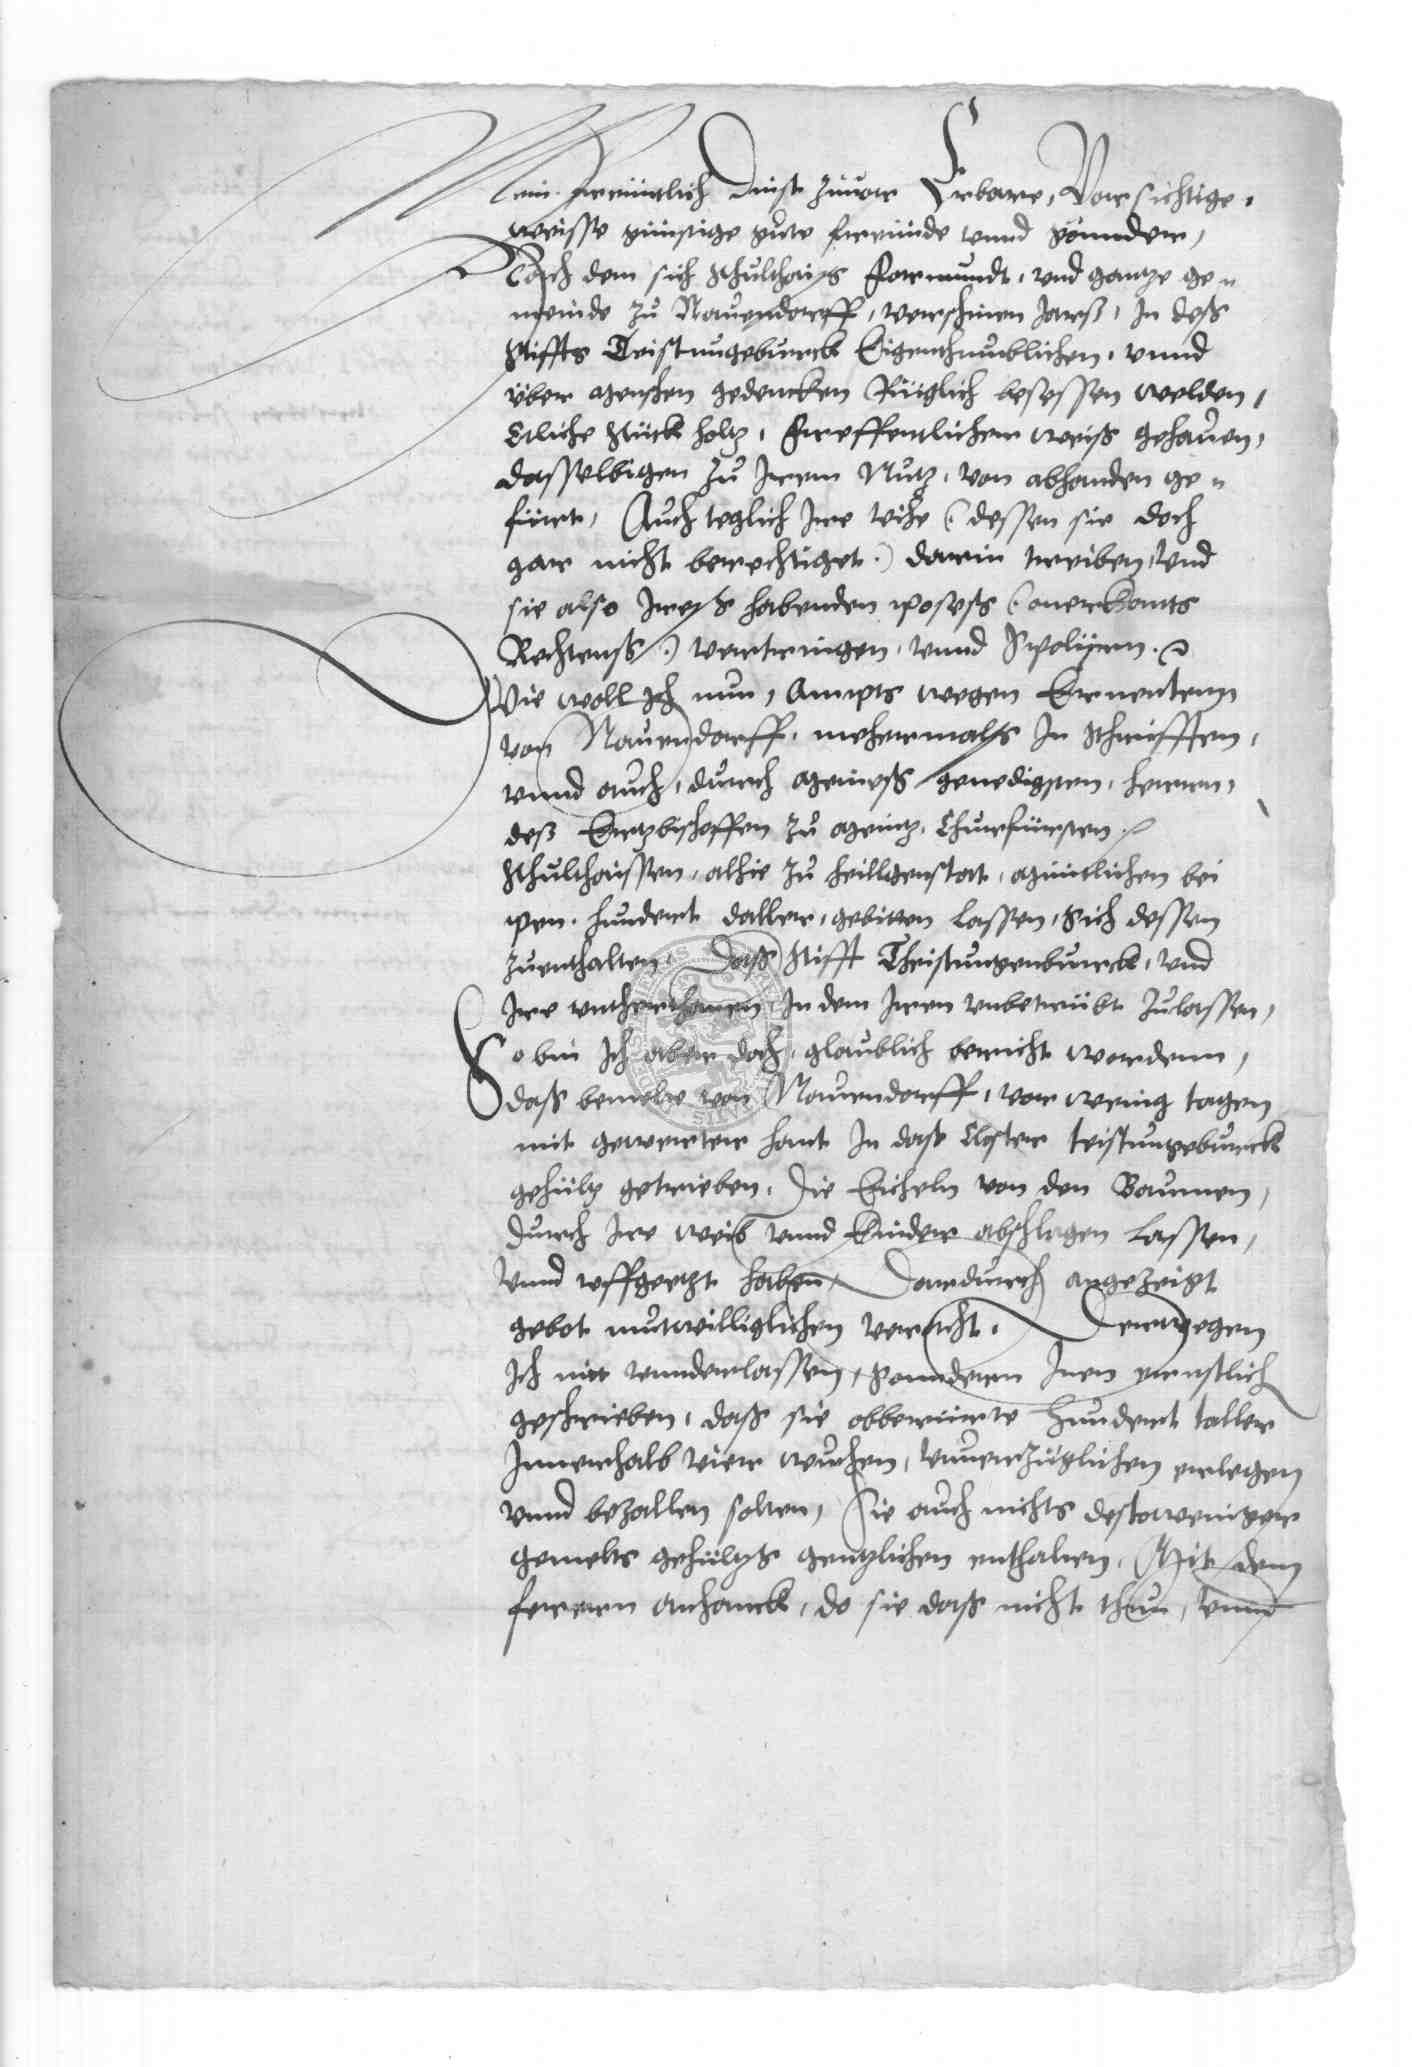 Mein freuntlich Dinst zuuor Erbare, Vorsichtige,
weisse günstige gute freunde vnnd gönnder,
Nach dem sich Schulthais Formundt, vnd gantze ge=
meinde zu Nauendorff, verschinen Jarß, In deß
Stiffts Teistungeburck Eigenthumblichen, vnnd
über menschen gedencken Rüiglich besessen welden,
Etliche stück holtz, Freffentlicher weiß gehauen,
dasselbigen zu Irem Nutz, von abhanden ge=
fürt, Auch teglich Ire vihe (dessen sie doch
gar nicht berechtiget.) darin treiben, Vnd
sie also Ireß habenden poseß (onerkants
Rechtenß.) vertringen, vnnd Spolijren.
Wie woll Ich nun, Ampts wegen Ernenten
von Nauendorff, mehermalß In schrifften,
vnnd auch, durch meineß genedigsten, herren,
deß Ertzbischoffen zu Meintz, Churfürsten
Schulthaissen, alhie zu heilligenstat, müntlichen bei
pen. hundert daller, gebitten lassen, Sich dessen
zuenthalten, Daß Stifft Theistungenburck, vnd
Ire vntherthanen, In dem Iren vnbetrübt zulassen,
So bin Ich aber doch, glaublich bericht wordenn,
daß bemelte von Nauendorff, vor wenig tagen
mit gewerter hant In daß Closter teistungeburck
gehültz getrieben, Die Eicheln von den Baumen,
durch Ire weib vnnd kinder abschlagen lassen,
Vnnd vffgeetzt haben, Dardurch angezeigt
gebot mutwilliglichen veracht, Derwegen
Ich nit vnnderlassen, Sonnderen Inen ernstlich
geschrieben, daß sie obberürte hundert taller
Innerhalb vier wuchen, vnuerzüglichen erlegen
vnnd bezallen solten, Sie auch nichts destoweniger
gemelts gehültzs gentzlichen enthalten, Mit dem
ferren anhanck, do sie daß nicht thun, Vnnd